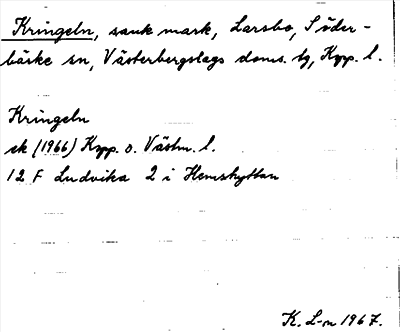 Kringeln, sank mark, Larsbo, Söder-
bärke sn, Västerbergslags doms. tg, Kopp. l.
Kringeln
ek (1966) Kopp. o. Västm. l.
12 F Ludvika 2 i Hemshyttan
K. L-n 1967.